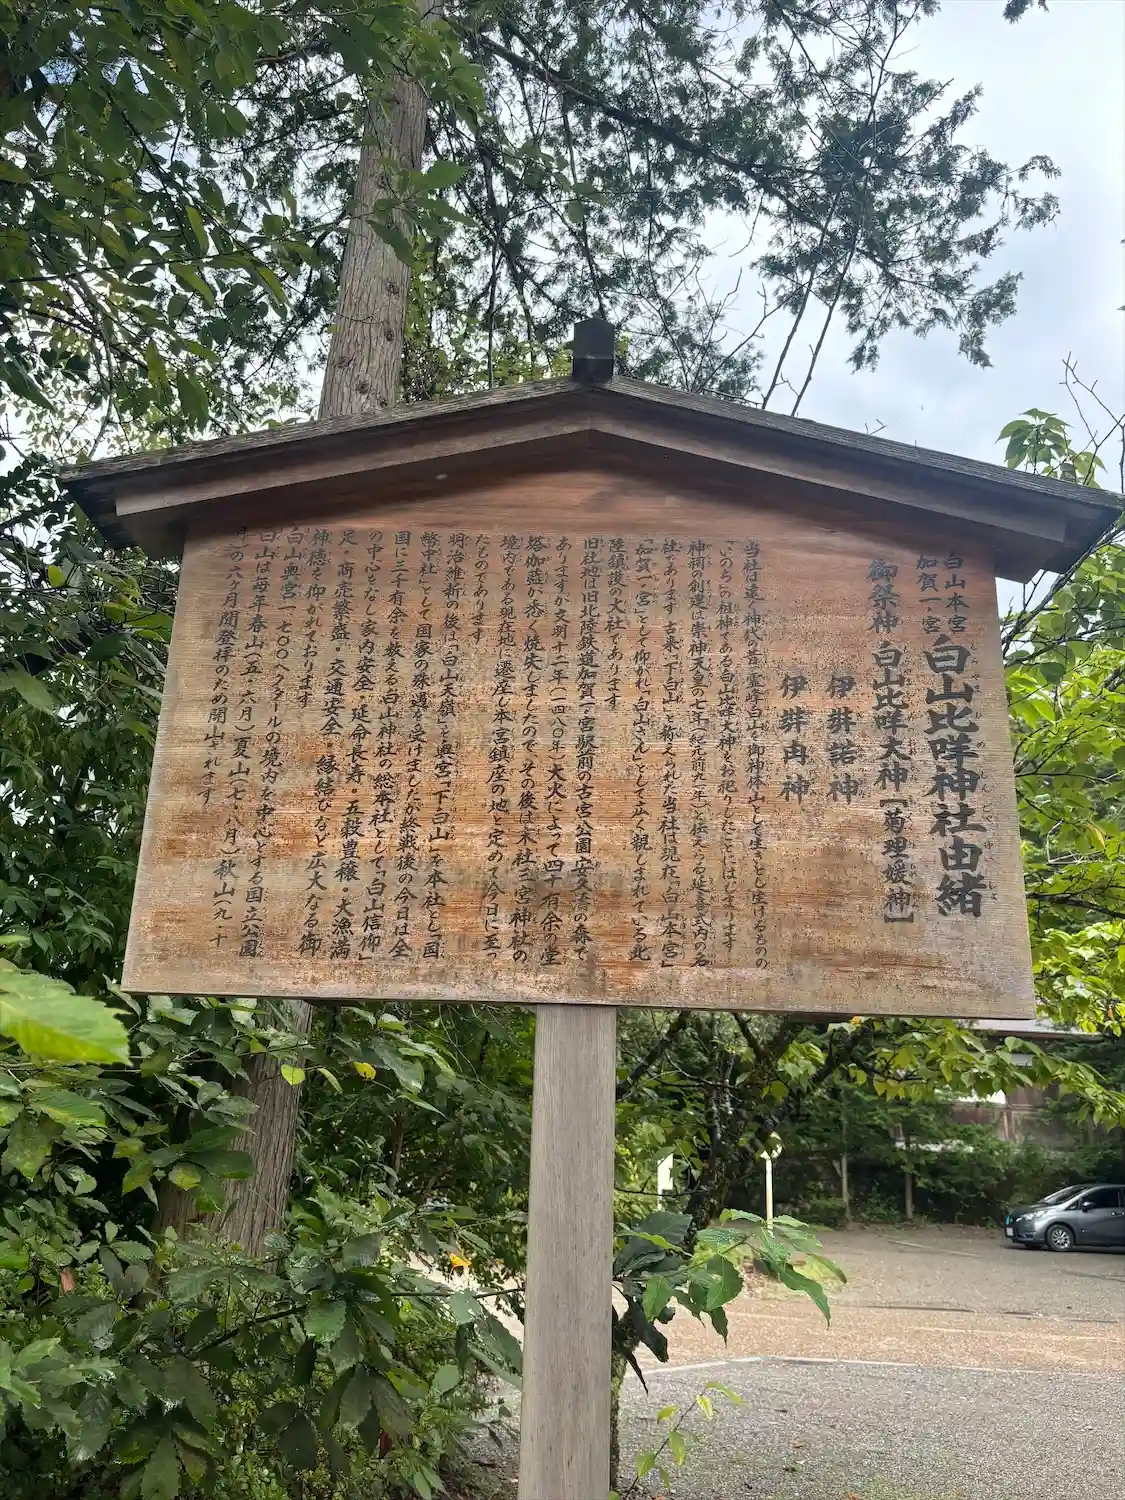 白山本宮
加賀一ノ宮
白山比咩神社由緒
御祭神 白山比咩大神[菊理媛神]
伊弉諾神
伊弉冉神
当社は遠く神代の昔霊峰白山を御神体山として生きとし生けるものの
「いのち」の祖神である白山比咩大神をお祀りしたことにはじまります
神祠の創建は崇神天皇の七年(紀元前九一年)と伝えらる延喜式内の名
社であります 古来「下白山」と称えられた当社は現在「白山本宮」
「加賀一ノ宮」として仰がれ「白山さん」として広く親しまれている北
陸鎮護の大社であります
旧社地は旧北陸鉄道加賀一の宮駅前の古宮公園「安久濤の森」で
ありますが文明十二年(一四八〇年)大火によって四十有余の堂
塔伽藍が悉く焼失しましたので、その後は末社三宮神社の
境内である現在地に遷座し本宮鎮座の地と定めて今日に至っ
たものであります
明治維新の後は「白山天嶺」を奥宮「下白山」を本社とし「国
幣中社」として国家の殊遇を受けましたが終戦後の今日は全
国に三千有余を数える白山神社の総本社として「白山信仰」
の中心をなし家内安全・延命長寿・五穀豊穣・大漁満
足・商売繁盛・交通安全・縁結びなど広大なる御
神徳を仰がれております
白山奥宮一七〇〇ヘクタールの境内を中心とする国立公園
白山は毎年春山(五・六月)夏山(七・八月)秋山(九・十
月)の六ヶ月間登拝のため開山されます